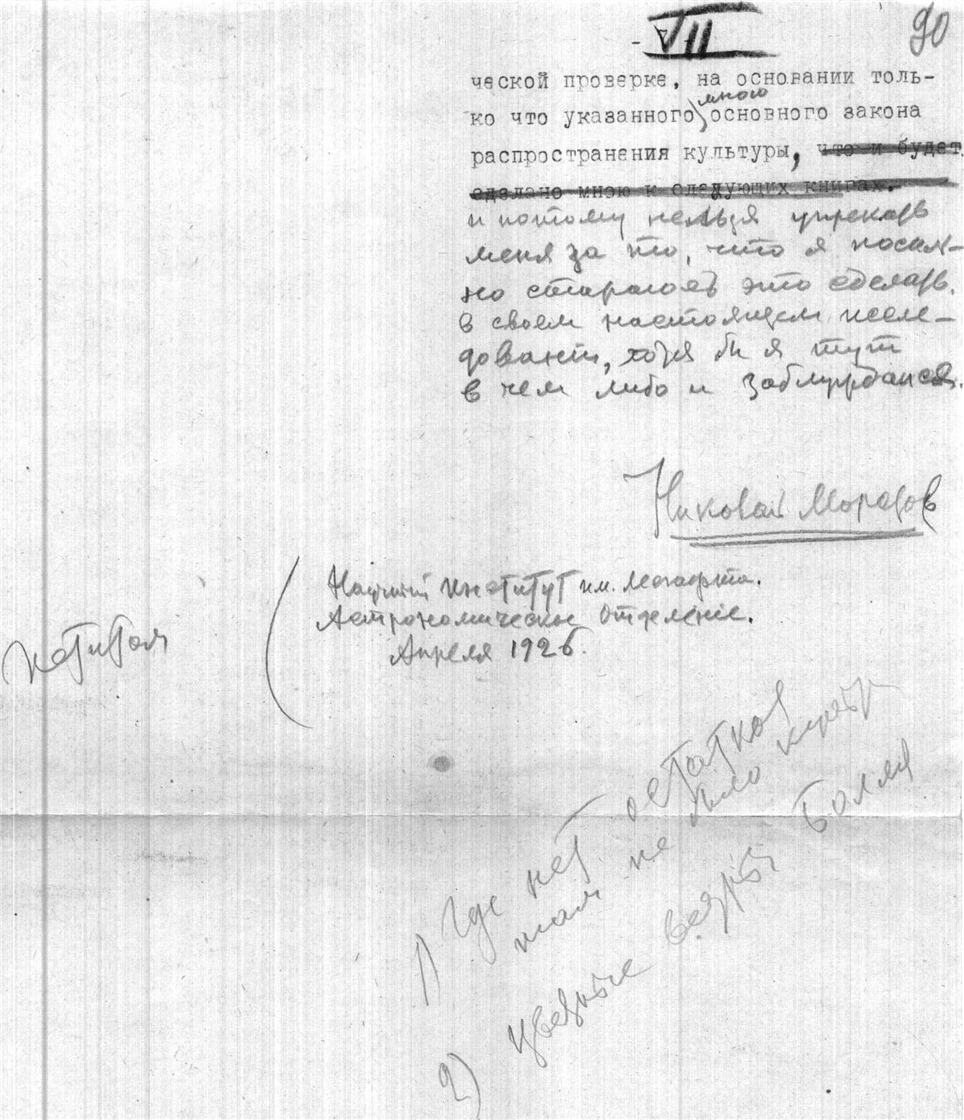 VII
90
ческой проверке, на основании толь-
мною
ко что указанного основного закона
распространения культуры, что и будет
сделано мною к следующих книгах.
и потому нельзя упрекать
меня за то, что я посиль-
но стараюсь это сделать
в своем настоящем иссле-
довании, хотя бы я тут
в чем либо и заблуждался.
Николай Морозов
Научный Институт им. Лесгафта.
Астрономическое Отделение.
Апреля 1926.
петитом
1) Где нет остатков
там не было
2) цветные